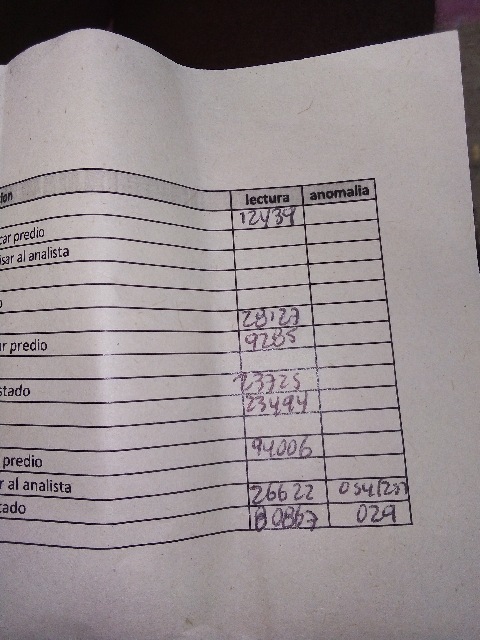 ion lectura anomalia
12439
car predio
isar al analista
o
28127
ar predio 9285
stado 23725
23494
predio 94006
r al analista 26622
cado 80867 029